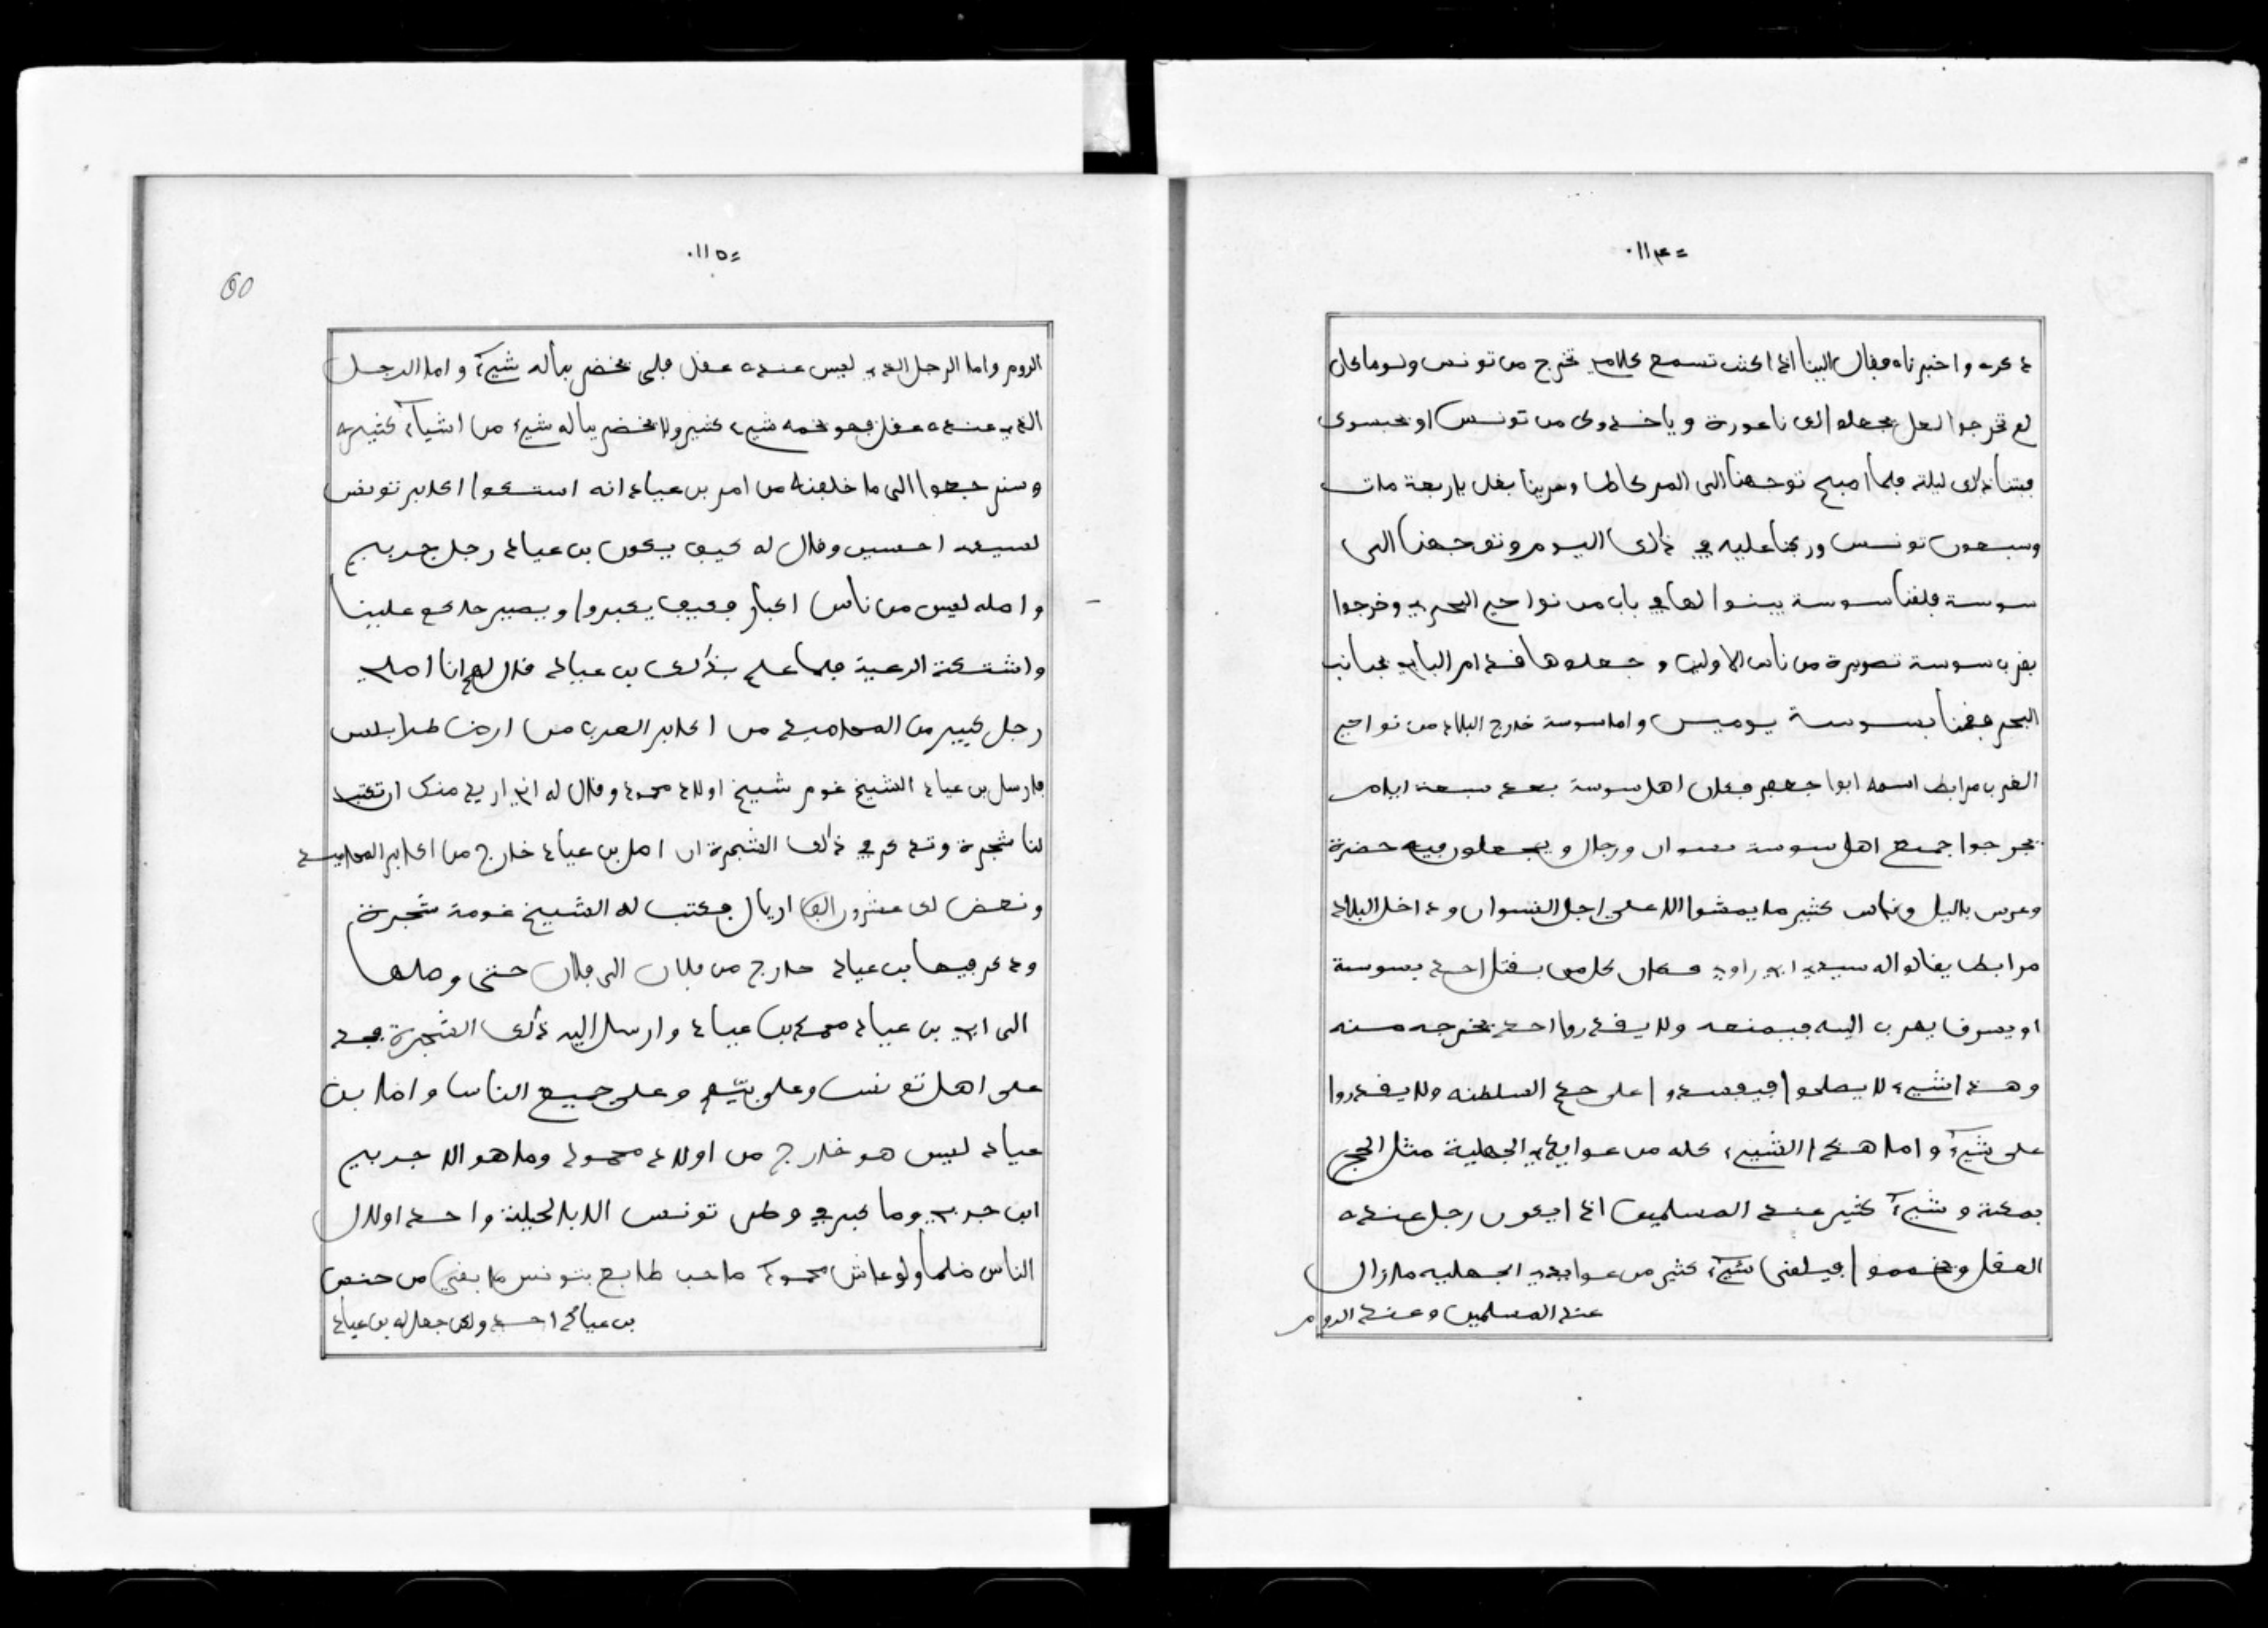 =١١٤٠
ذكره واخبرناه فقال الينا اذا كنت تسمع كلامي تخرج من تونس ولو ما كان
لم تخرجوا لعل يجعلوا لك ناعورة وياخذوك من تونس او يحبسوك
فبتنا ذلك ليلة فلما اصبح توجهنا الى المركانطا وشرينا بغل باربعة مات
وسبعون تونس وركبنا عليه في ذلك اليوم وتوجهنا الى
سوسة فلقنا سوسة يبنوا لها في باب من نواحي البحري وخرجوا
بقرب سوسة تصويرة من ناس الاولين وجعلوها قدام الباب بجانب
البحر فقمنا بسوسة يوميس واما سوسة خارج البلاد من نواحي
الغرب مرابط اسمه ابوا جعفر فكان اهل سوسة بعد سبعة ايام
يخرجوا جميع اهل سوسة نسوان ورجال ويجعلون فيه حضرة
وعرس باليل وناس كثير ما يمشوا الا على اجل النسوان وداخل البلاد
مرابط يقالوا له سيدي ابي راوي فكان كل من يقتل احد بسوسة
او يسرف يهرب اليه فيمنعه ولا يقدروا احد يخرجه منه
وهذا شيء لا يصلحوا فيفسدوا على حكم السلطنه ولا يقدروا
على شيء واما هذا الشيء كله من عوايد الجهلية مثل الحج
بمكة وشيء كثير عند المسلمين اذا يكون رجل عنده
العقل ويخمموا فيلقى شيء كثير من عوايد الجهليه مازال
عند المسلمين وعند الروم
=١١٥٠
60
الروم واما الرجل الذي ليس عنده عقل فلم يخضر بباله شيء واما الرجل
الذي عنده عقل فهو يخمه شيء كثير ولا يخضر بباله شيء من اشياء كثيره
وسنرجعوا الى ما خلفنه من امر بن عياد انه استكوا اكابر تونس
لسيد احسين وقال له كيف يكون بن عياد رجل جربي
واصله ليس من ناس اكبار فكيف يكبروا ويصير حاكم علينا
واشتكة الرعية فلما علم بذلك بن عياد قال لهم انا اصلي
رجل كبير من المحاميد من اكابر العرب من ارض طرابلس
فارسل بن عياد الشيخ غوم شيخ اولاد محمود وقال له اني اريد منك ان تكتب
لنا شجرة وتذكر في ذلك الشجرة ان اصل بن عياد خارج من اكابر المحاميد
ونعض لك عشرون الف اريال فكتب له الشيخ غومة شجرة
وذكر فيها بن عياد خارج من فلان الى فلان حتى وصلها
الى ابي بن عياد محمد بن عياد وارسل اليه ذلك الشجرة فجد
على اهل تونس وعلى بيهم وعلى جميع الناس واما بن
عياد ليس هو خارج من اولاد محمود وما هو الا جربي
ابن جربي وما كبر في وطن تونس الا بالحيلة واحد اولال
الناس ضلما ولو عاش محمود صاحب طابع بتونس ما بقي من حنص
بن عياد احد ولكن جعل له بن عياد